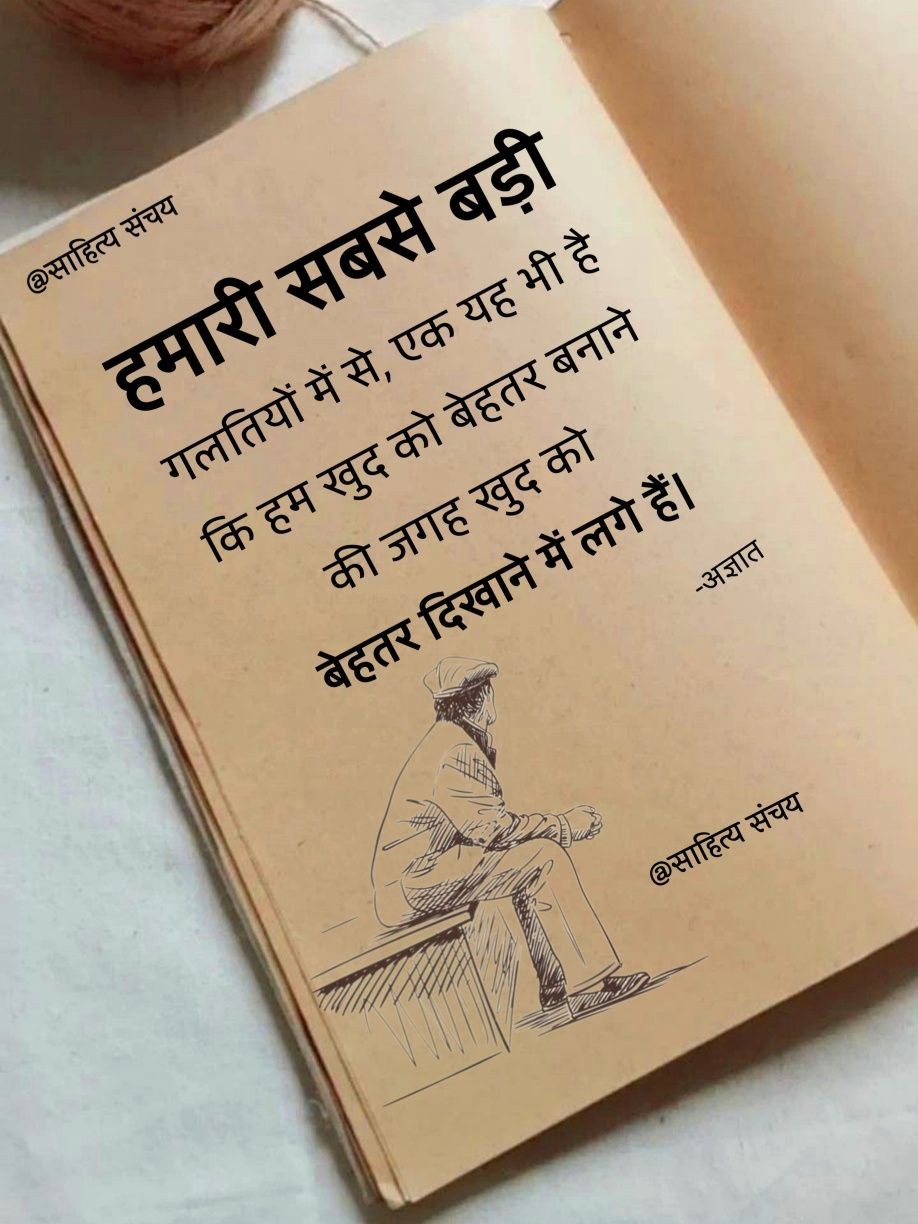 @साहित्य संचय
हमारी सबसे बड़ी
गलतियों में से, एक यह भी है
कि हम खुद को बेहतर बनाने
की जगह खुद को
बेहतर दिखाने में लगे हैं।
-अज्ञात
@साहित्य संचय